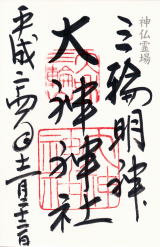 神仏霊場
三輪明神
大神神社
平成二十四年十二月二十二日